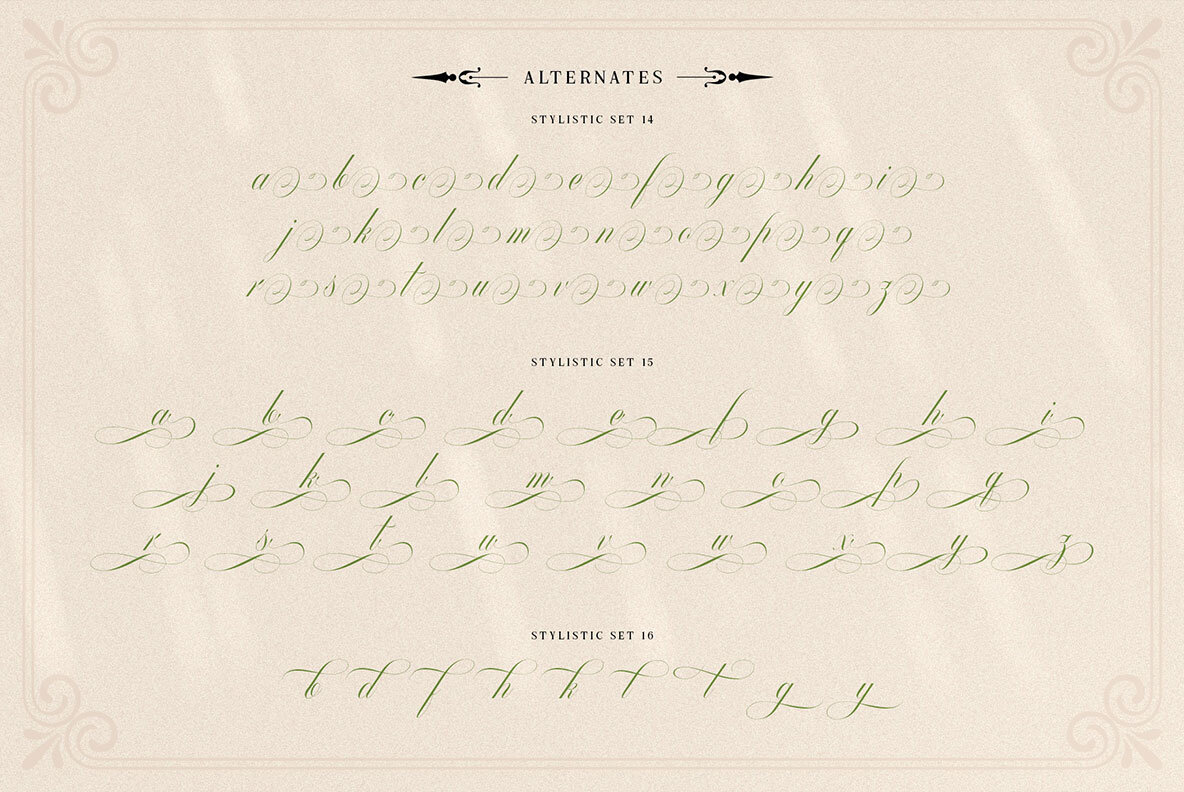 ALTERNATES
STYLISTIC SET 14
a b c d e f g h i
j k l m n o p q
r s t u v w x y z
STYLISTIC SET 15
a b c d e f g h i
j k l m n o p q
r s t u v w x y z
STYLISTIC SET 16
b d f h k l t g y